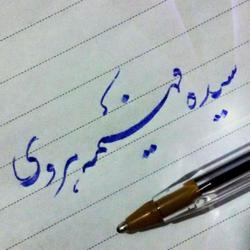 سیده فهیمه هروی